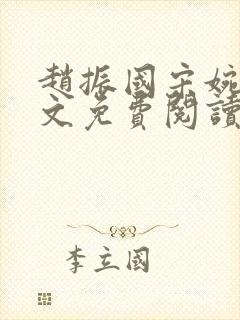 趙振國宋婉
文免費閱讀
李立國